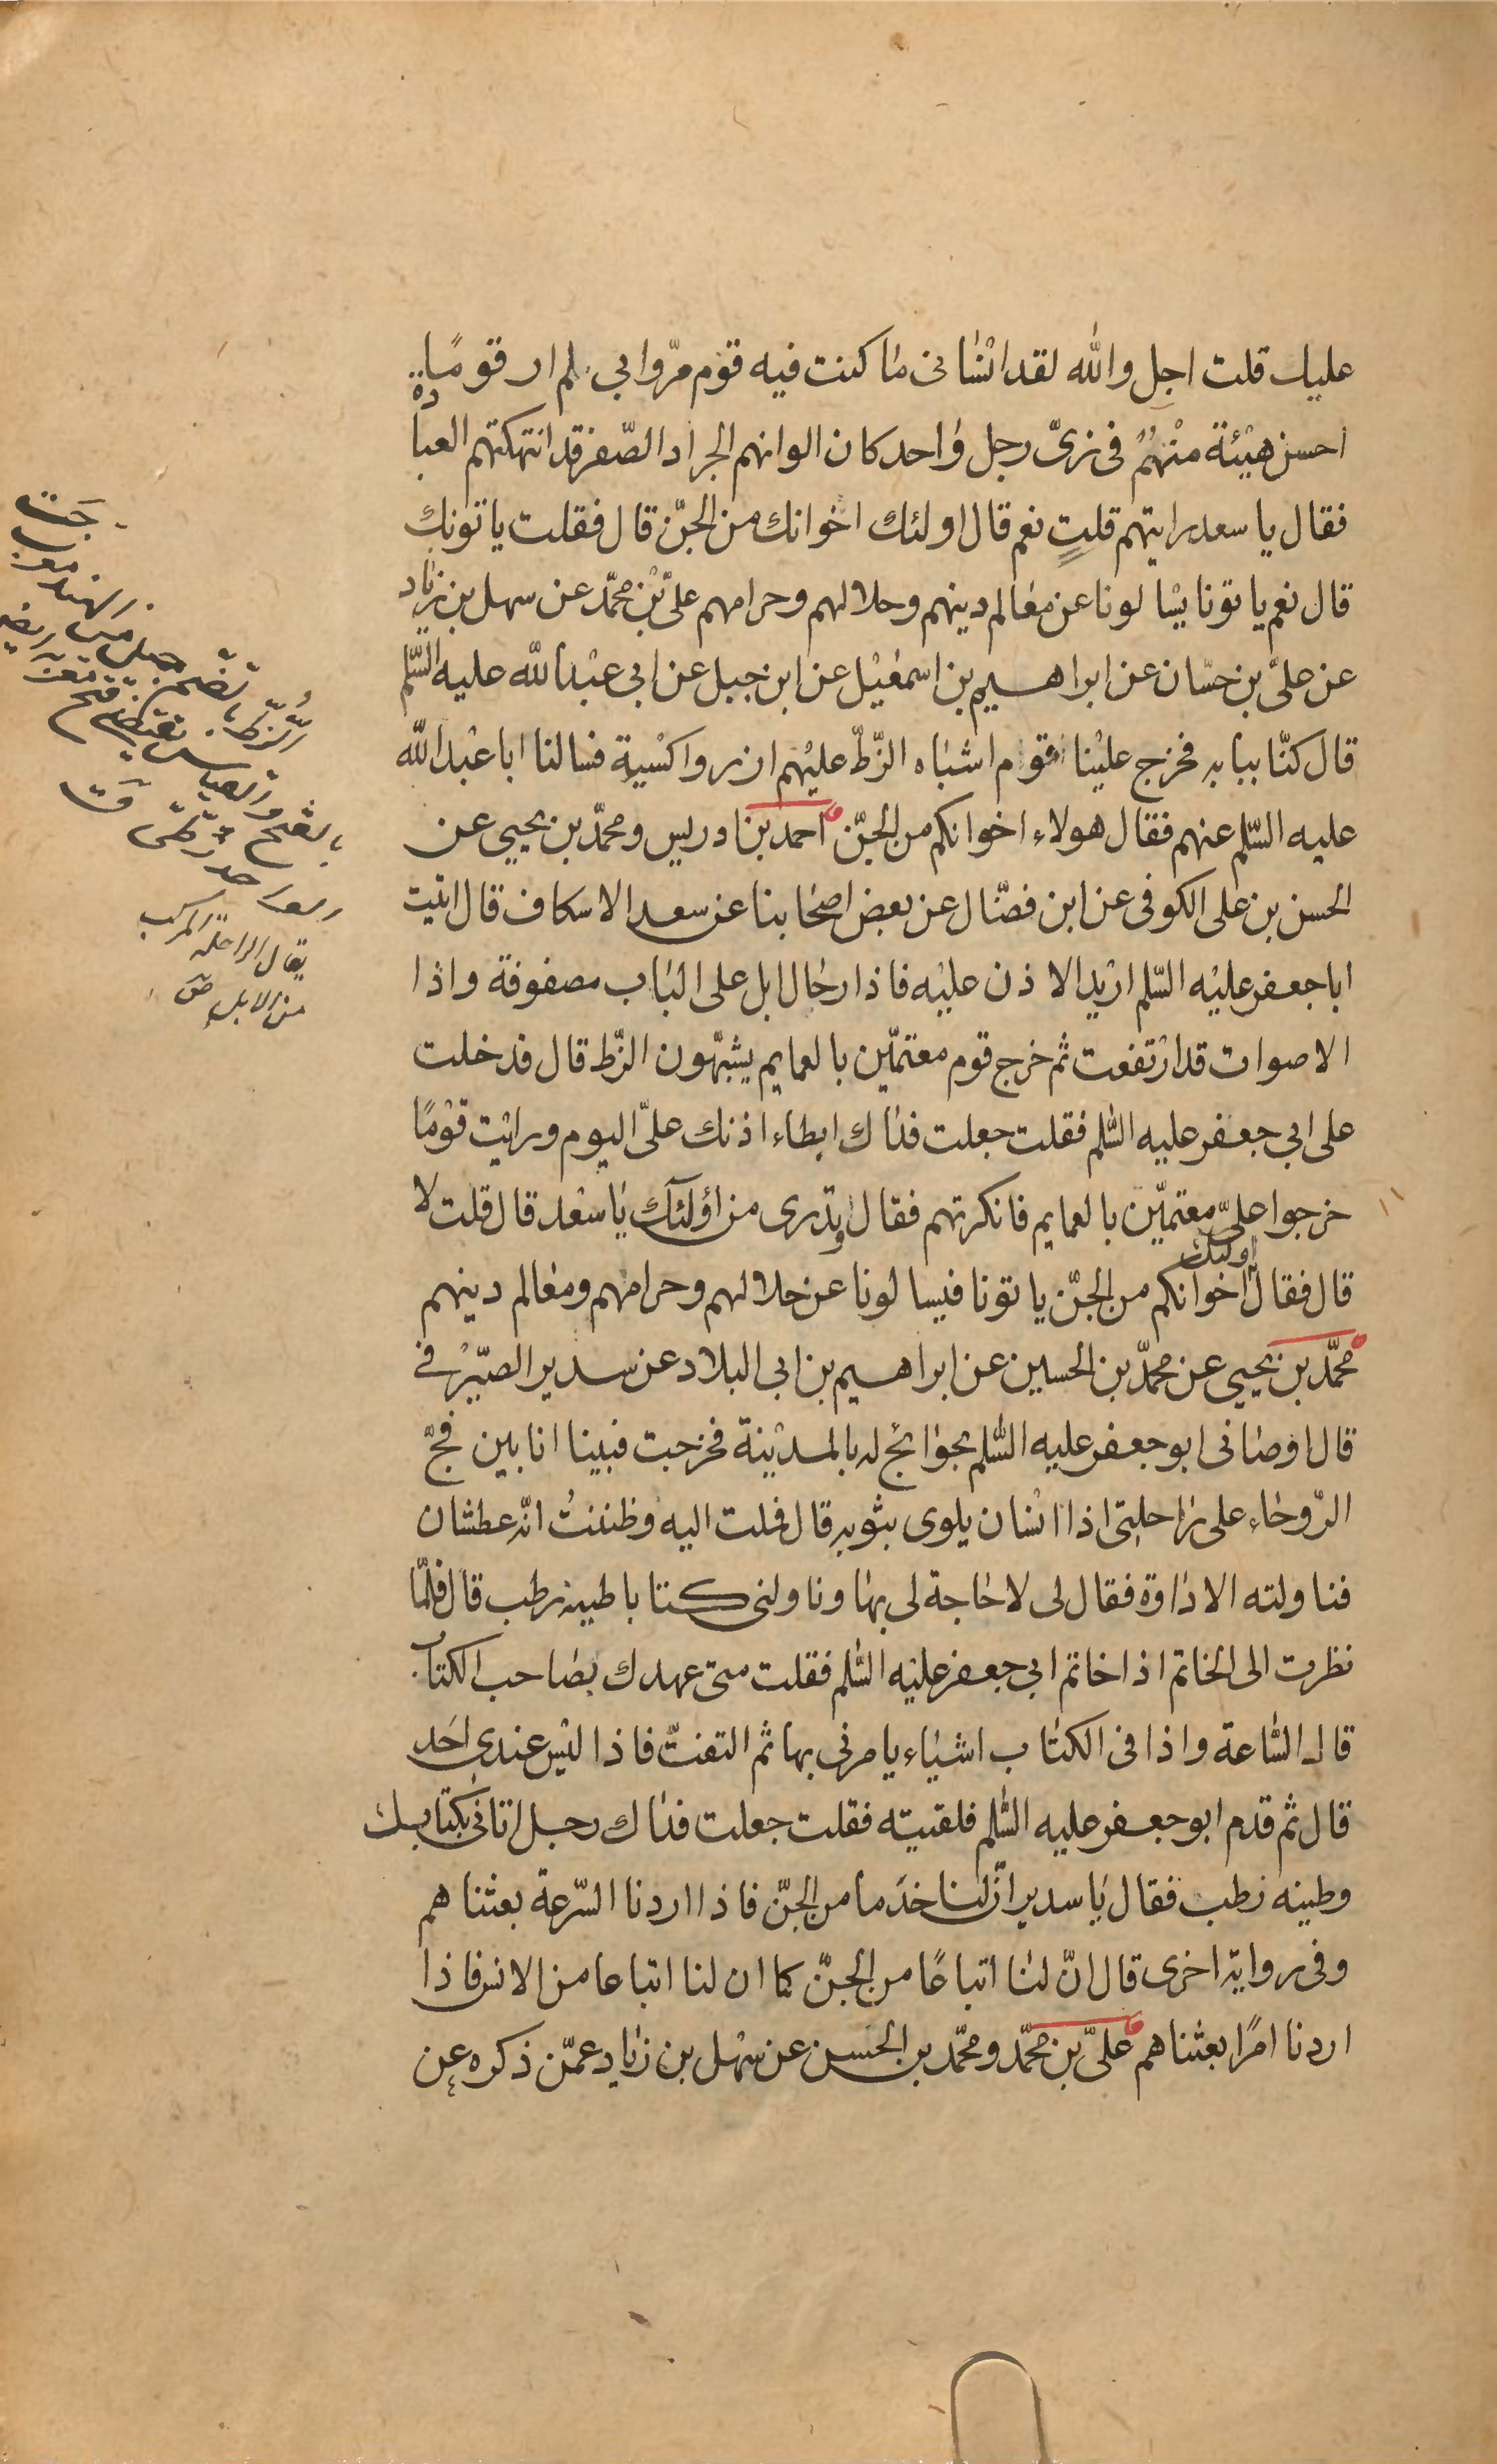 عليك قلت اجل والله لقد انسانى ما كنت فيه قوم مرّوا بى لم ار قومًا
احسن هيئة منهم فى زىّ رجل واحد كان الوانهم الجراد الصّفر قد انتهكتهم العبادة
فقال يا سعد رايتهم قلت نعم قال اولئك اخوانك من الجنّ قال فقلت ياتونك
قال نعم ياتونا يسالونا عن معالم دينهم وحلالهم وحرامهم علىّ بن محمّد عن سهل بن زياد
عن علىّ بن حسّان عن ابراهيم بن اسمعيل عن ابن جبل عن ابى عبد الله عليه السّلم
قال كنّا ببابه فخرج علينا قوم اشباه الزّطّ عليهم ازر واكسية فسالنا ابا عبد الله
عليه السّلم عنهم فقال هولاء اخوانكم من الجنّ احمد بن ادريس ومحمّد بن يحيى عن
الحسن بن على الكوفى عن ابن فضّال عن بعض اصحابنا عن سعد الاسكاف قال اتيت
ابا جعفر عليه السّلم اريد الاذن عليه فاذا رحال ابل على الباب مصفوفة واذا
الاصوات قد ارتفعت ثم خرج قوم معتمّين بالعمايم يشبّهون الزّط قال فدخلت
على ابي جعفر عليه السّلم فقلت جعلت فداك ابطاء اذنك علىّ اليوم ورايت قومًا
خرجوا علىّ معتمّين بالعمايم فانكرتهم فقال اوتدرى من اولئك يا سعد قال قلت لا
قال فقال اولئك اخوانكم من الجنّ ياتونا فيسالونا عن حلالهم وحرامهم ومعالم دينهم
محمّد بن يحيى عن محمّد بن الحسين عن ابراهيم بن ابى البلاد عن سدير الصّيرفى
قال اوصانى ابو جعفر عليه السّلم بحوائج له بالمدينة فخرجت فبينا انا بين فجّ
الرّوحاء على راحلتى اذا انسان يلوى بثوبه قال فملت اليه وظننت انّه عطشان
فناولته الاداوة فقال لى لا حاجة لى بها وناولنى كتابا طينه رطب قال فلمّا
نظرت الى الخاتم اذا خاتم ابي جعفر عليه السّلم فقلت متى عهدك بصاحب الكتاب
قال السّاعة واذا فى الكتاب اشياء يامرني بها ثم التفتّ فاذا ليس عندى احد
قال ثم قدم ابو جعفر عليه السّلم فلقيته فقلت جعلت فداك رجل اتانى بكتابك
وطينه رطب فقال يا سدير انّ لنا خدَما من الجنّ فاذا اردنا السّرعة بعثناهم
وفى رواية اخرى قال انّ لنا اتباعًا من الجنّ كما ان لنا اتباعا من الانس فاذا
اردنا امرًا بعثناهم علىّ بن محمّد ومحمّد بن الحسن عن سهل بن زياد عمّن ذكره عن
الزّطّ بالضم جيل من الهند
يقال الراحلة المركب
من الابل